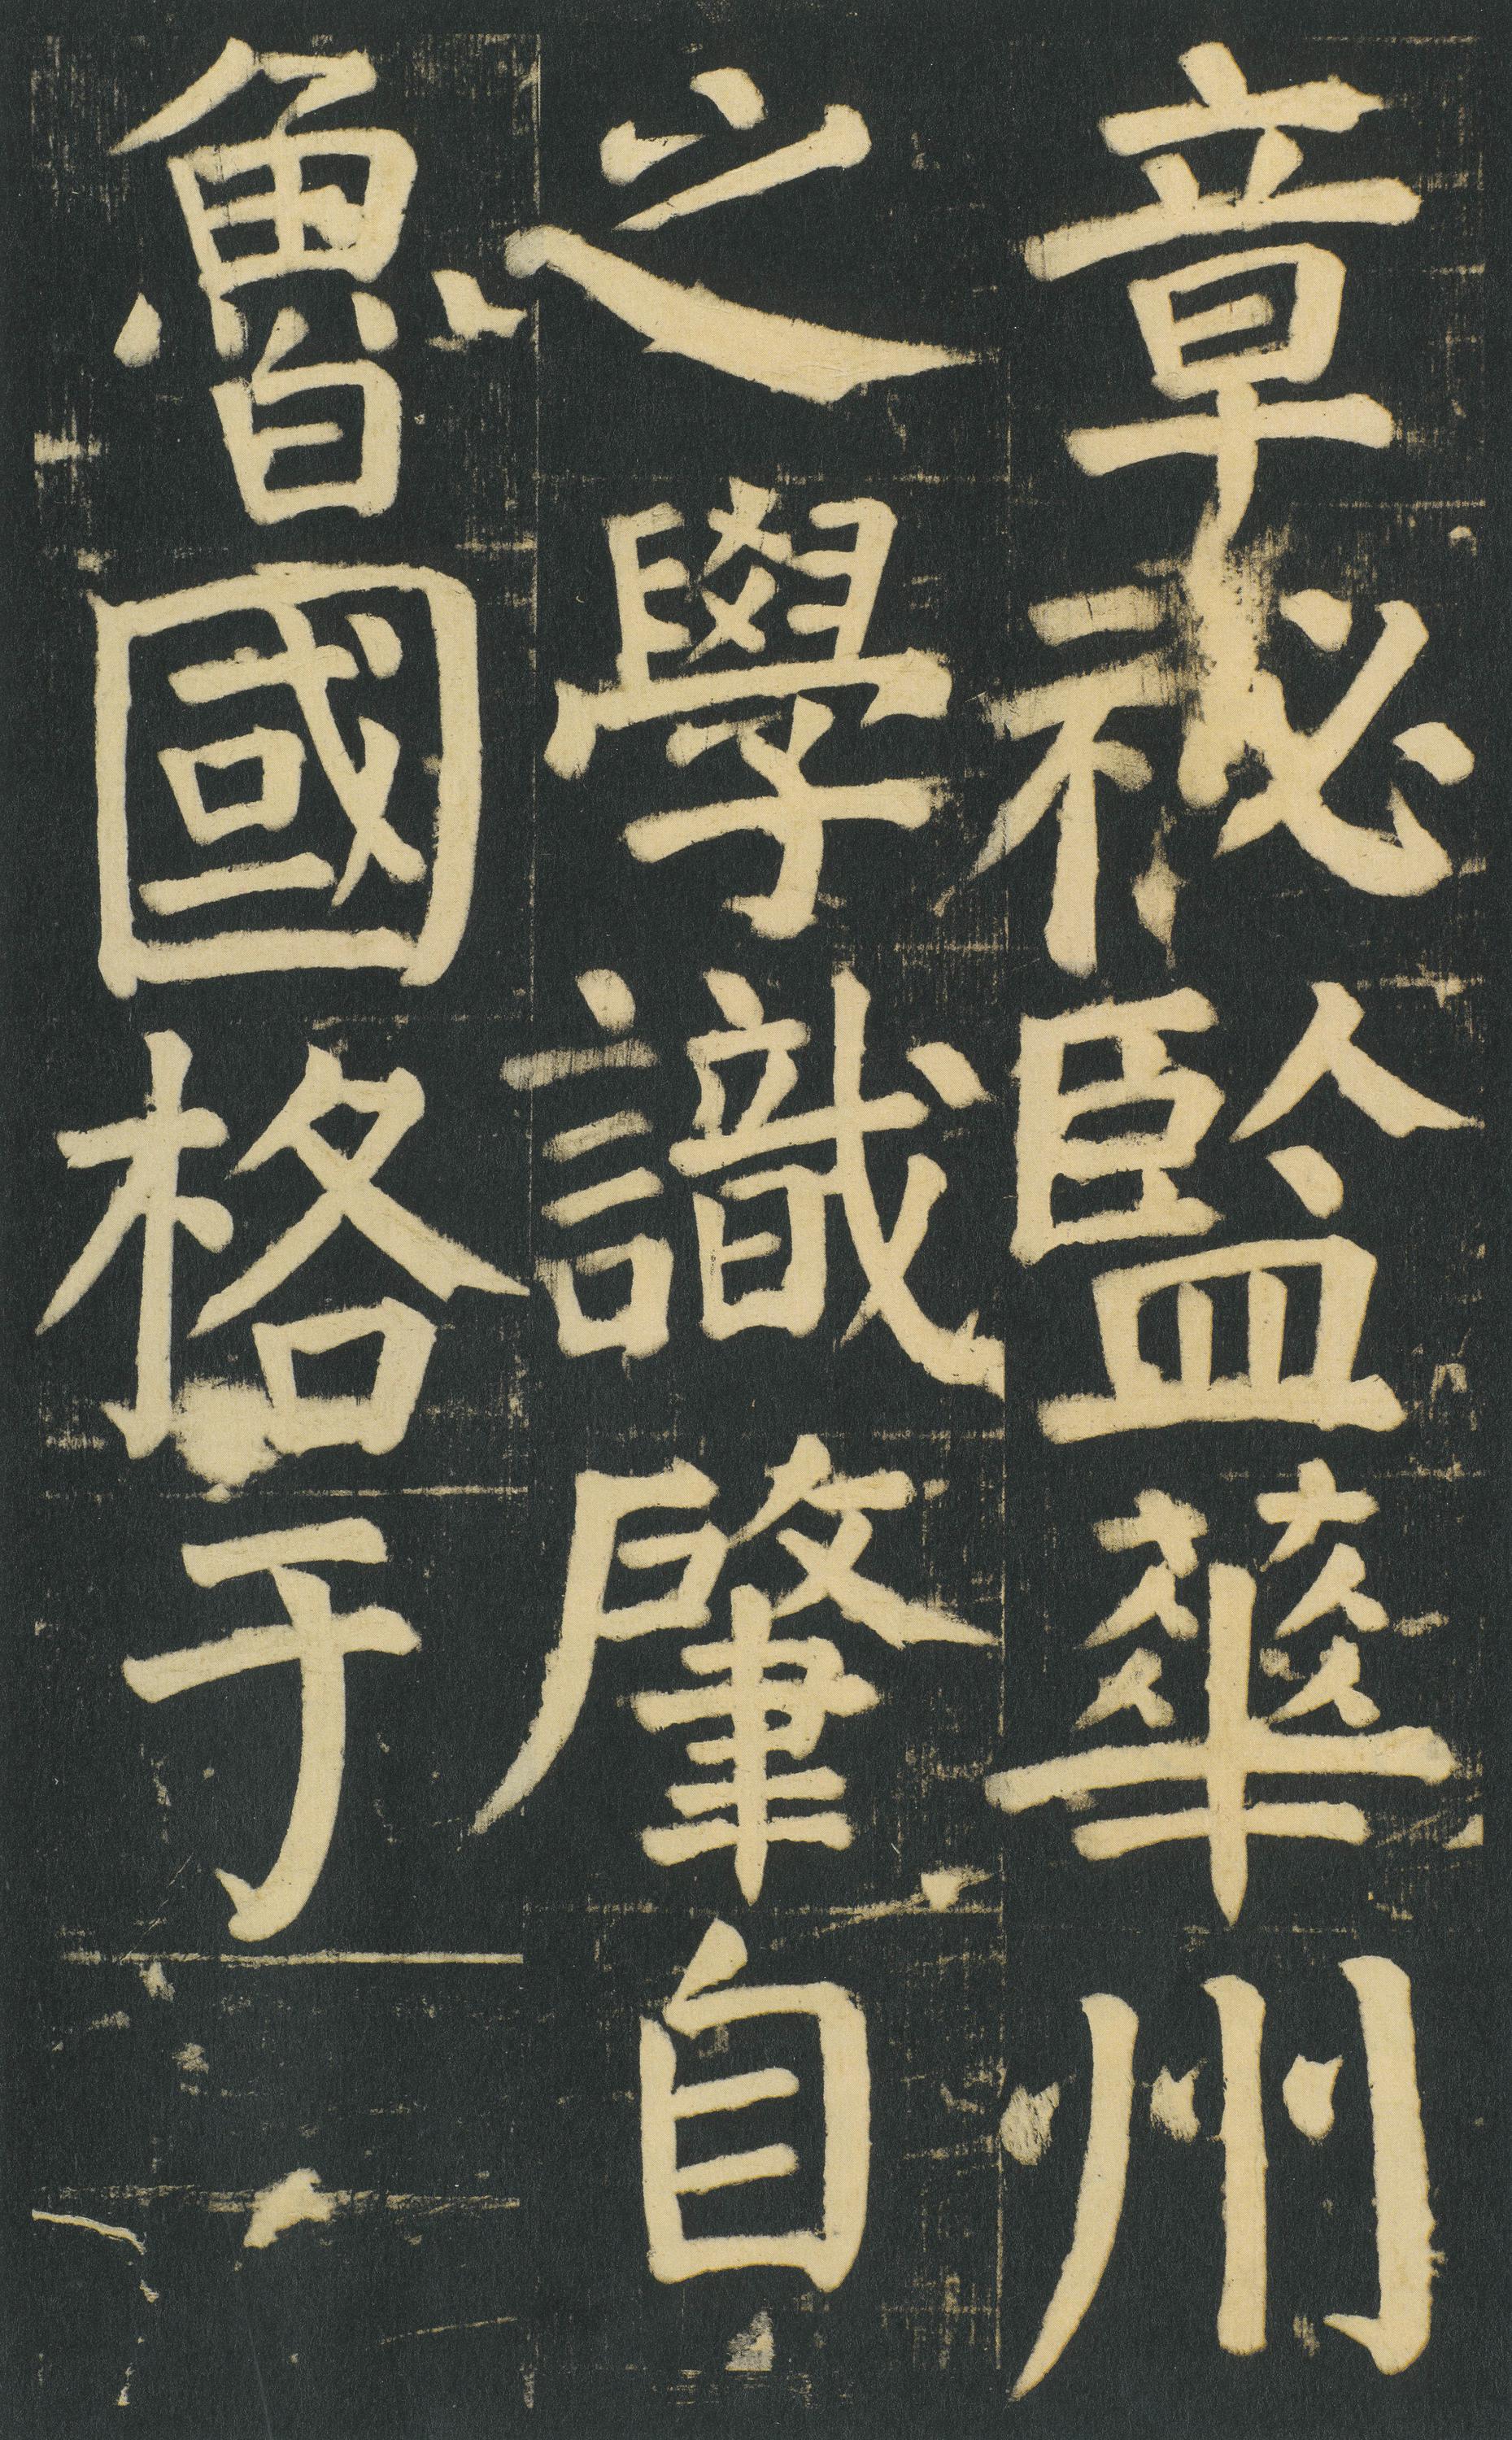 章祕監華州
之學識肇自
魯國格于